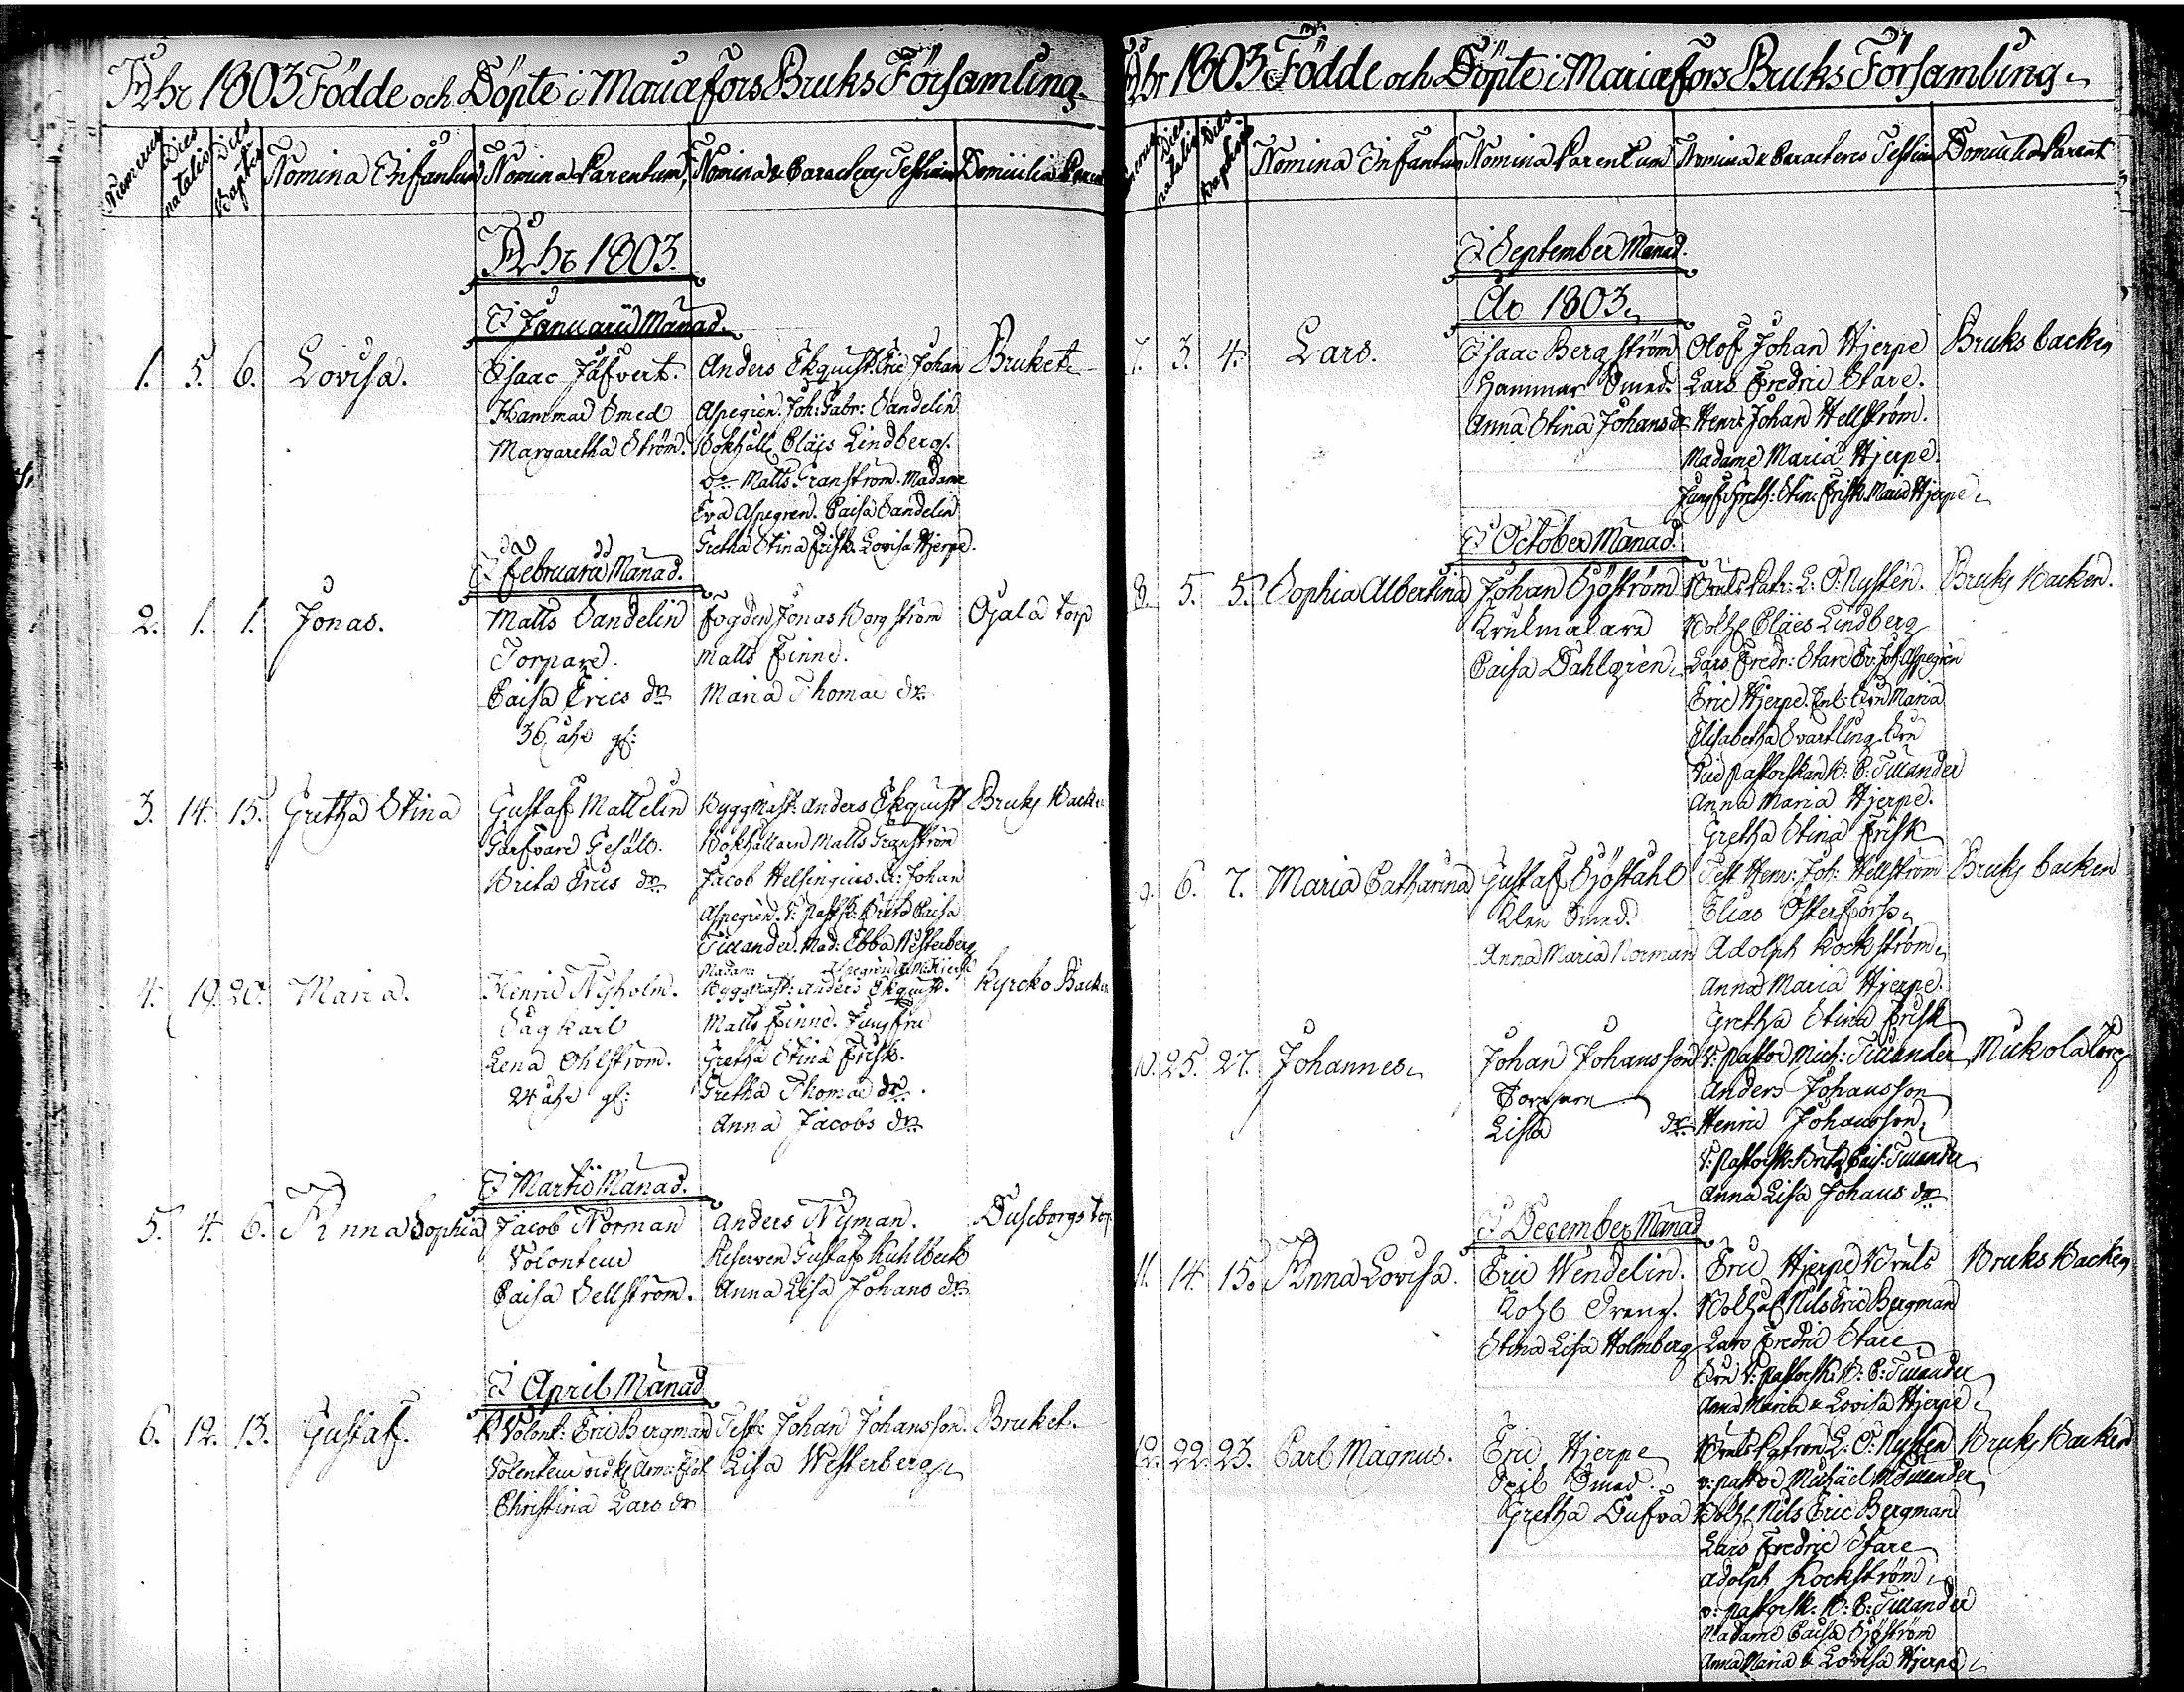 Åhr 1803 Födde och Döpte i Mariæfors Bruks Församling.
Numerus
Dies natalis
Dies Baptis
Nomina Infantum
Nomina Parentum
Nomina & Caracteres Testium
Domicilia Parent
Åhr 1803.
I Januarii Månad.
1. 5. 6. Lovisa. Isaac Jäfvert. Anders Ekquist. Eric Johan Bruket
Hammar Smed Aspegrén. Joh: Gabr: Sandelin
Margaretha Ström. Bokhåll: Claës Lindberg.
Dn Matts Granström. Madame
Eva Aspegren. Caisa Sandelin
Gretha Stina Frisk. Lovisa Hjerpe.
I Februarii Månad.
2. 1. 1. Jonas. Matts Sandelin Fogden Jonas Borgström Ojala Torp
Torpare. Matts Finne.
Caisa Erics dr Maria Thomae dr
36 åhr gl:
3. 14. 15. Gretha Stina Gustaf Mattelin Byggmäst: Anders Ekquist Bruks Backen
Garfvare Gesäll. Bokhållaren Matts Granström
Brita Erics dr Jacob Helsingius. E: Johan
Aspegrén. V: Pastsk: Brita Caisa
Tillander. Mad: Ebba Westerberg
Madam: Aspegrén
4. 19. 20. Maria. Henric Nyholm. Byggmäst: Anders Ekquist. Kyrcko Backen
Sågkarl Matts Finne. Jungfru
Lena Ohlström. Gretha Stina Frisk.
24 åhr gl: Gretha Thomae dr.
Anna Jacobs dr
I Martii Månad.
5. 4. 6. Anna Sophia Jacob Norman Anders Nyman. Duseborgs Torp
Volonteur Reserven Gustaf Kuhlbeck
Caisa Sellström. Anna Lisa Johans dr
I April Månad
6. 12. 13. Gustaf. Volont: Eric Bergman Test: Johan Johansson. Bruket.
Lisa Westerberg
Christina Lars dr
Åhr 1803 Födde och Döpte i Mariæfors Bruks Församling
Numerus
Dies natalis
Dies Baptis
Nomina Infantum
Nomina Parentum
Nomina & Caracteres Testium
Domicilia Parent
I September Månad.
År 1803
7. 3. 4. Lars. Isaac Bergström Olof Johan Hjerpe Bruks backen
Hammar Smed. Lars Fredric Stare.
Anna Stina Johans dr Henr: Johan Hellström.
Madame Maria Hjerpe.
Jungf: Greth: Stin: Frisk. Maria Hjerpe
I October Månad.
8. 5. 5. Sophia Albertina Johan Sjöström Bruks Patr: L: O: Nystén. Bruks Backen.
Krukmakare Bokh: Claës Lindberg
Caisa Dahlgrén Lars Fredr: Stare Er: Joh: Aspegrén
Eric Hjerpe. Enk: Fru Maria
Elisabetha Svartling. Fru
Vice Pastorskan B: C: Tillander
Anna Maria Hjerpe.
Gretha Stina Frisk
9. 6. 7. Maria Catharina Gustaf Sjöstahl Test Henr: Joh: Hellström Bruks backen
Klen Smed. Elias Österfors
Anna Maria Norman Adolph Kockström
Anna Maria Hjerpe.
Gretha Stina Frisk
10. 25. 27. Johannes Johan Johansson V: Pastor Mich: Tillander Mickola Torp
Torpare Anders Johansson
Lisa dr Henric Johansson
V: Pastorsk: Brita Cais: Tillander
Anna Lisa Johans dr
I December Månad
11. 14. 15. Anna Lovisa. Eric Wendelin. Eric Hjerpe Bruks Bruks Backen
Kohl Dreng. Bokhål Nils Eric Bergman
Stina Lisa Holmberg Lars Fredric Stare
Fru V: Pastorsk: B: C: Tillander
Anna Maria & Lovisa Hjerpe
12. 22. 23. Carl Magnus. Eric Hjerpe Bruks Patron L: O: Nystén Bruks Backen
Spik Smed. v: pastor Michaël Tillander
Gretha Dufva Bokh: Nils Eric Bergman
Lars Fredric Stare
Adolph Kockström
v: Pastorsk: B: C: Tillander
Madame Caisa Sjöström
Anna Maria & Lovisa Hjerpe